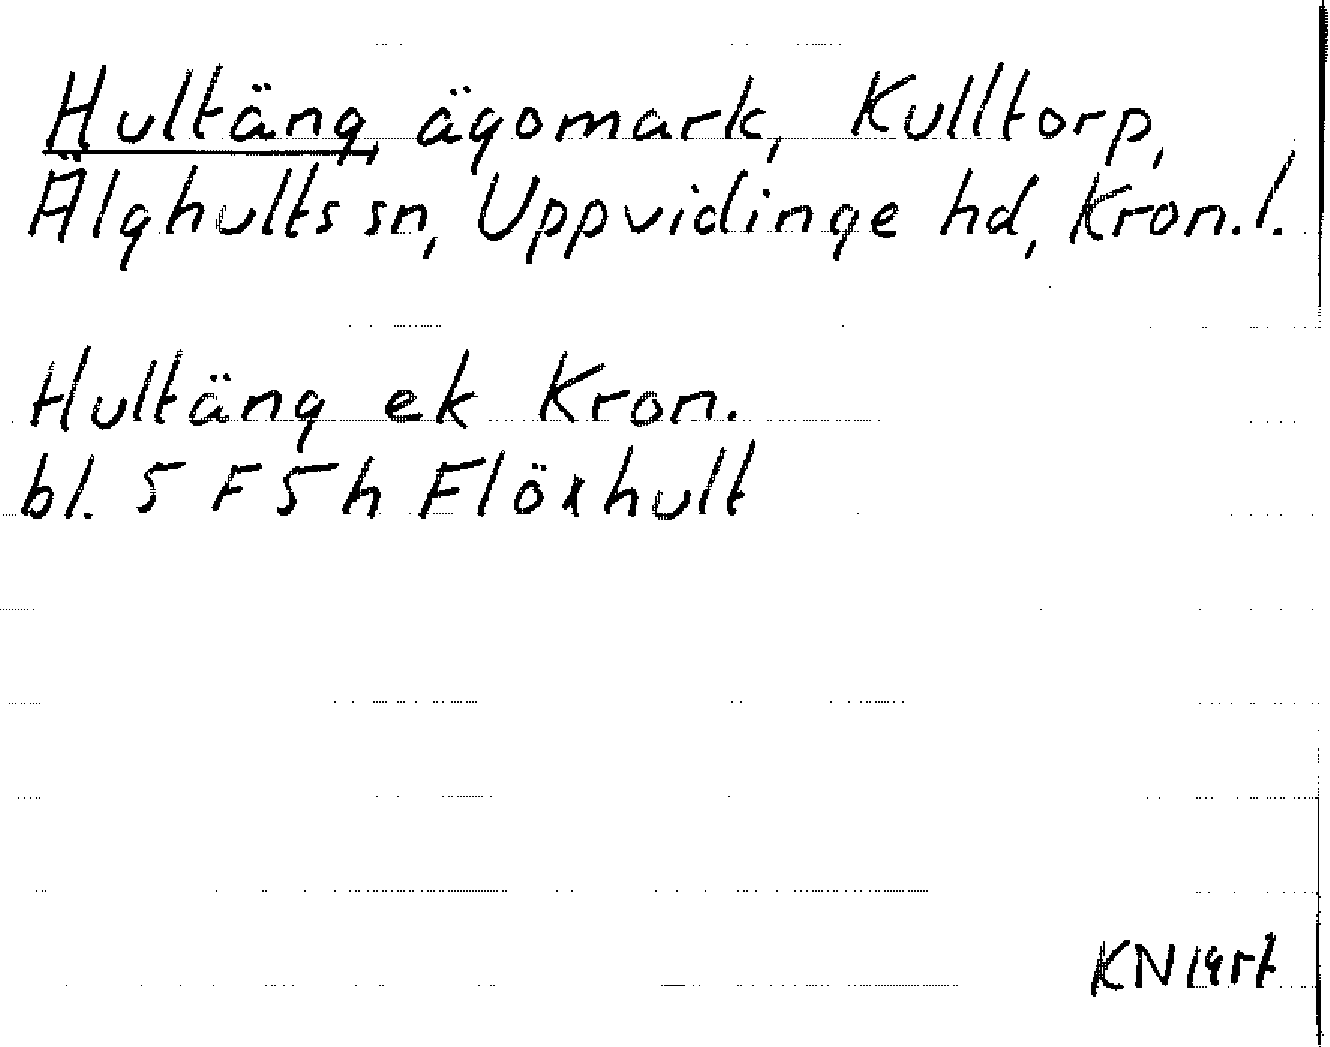 Hultäng, ägomark, Kulltorp,
Älghults sn, Uppvidinge hd, Kron. l.
Hultäng ek Kron.
bl. 5 F 5 h Flöxhult
KN